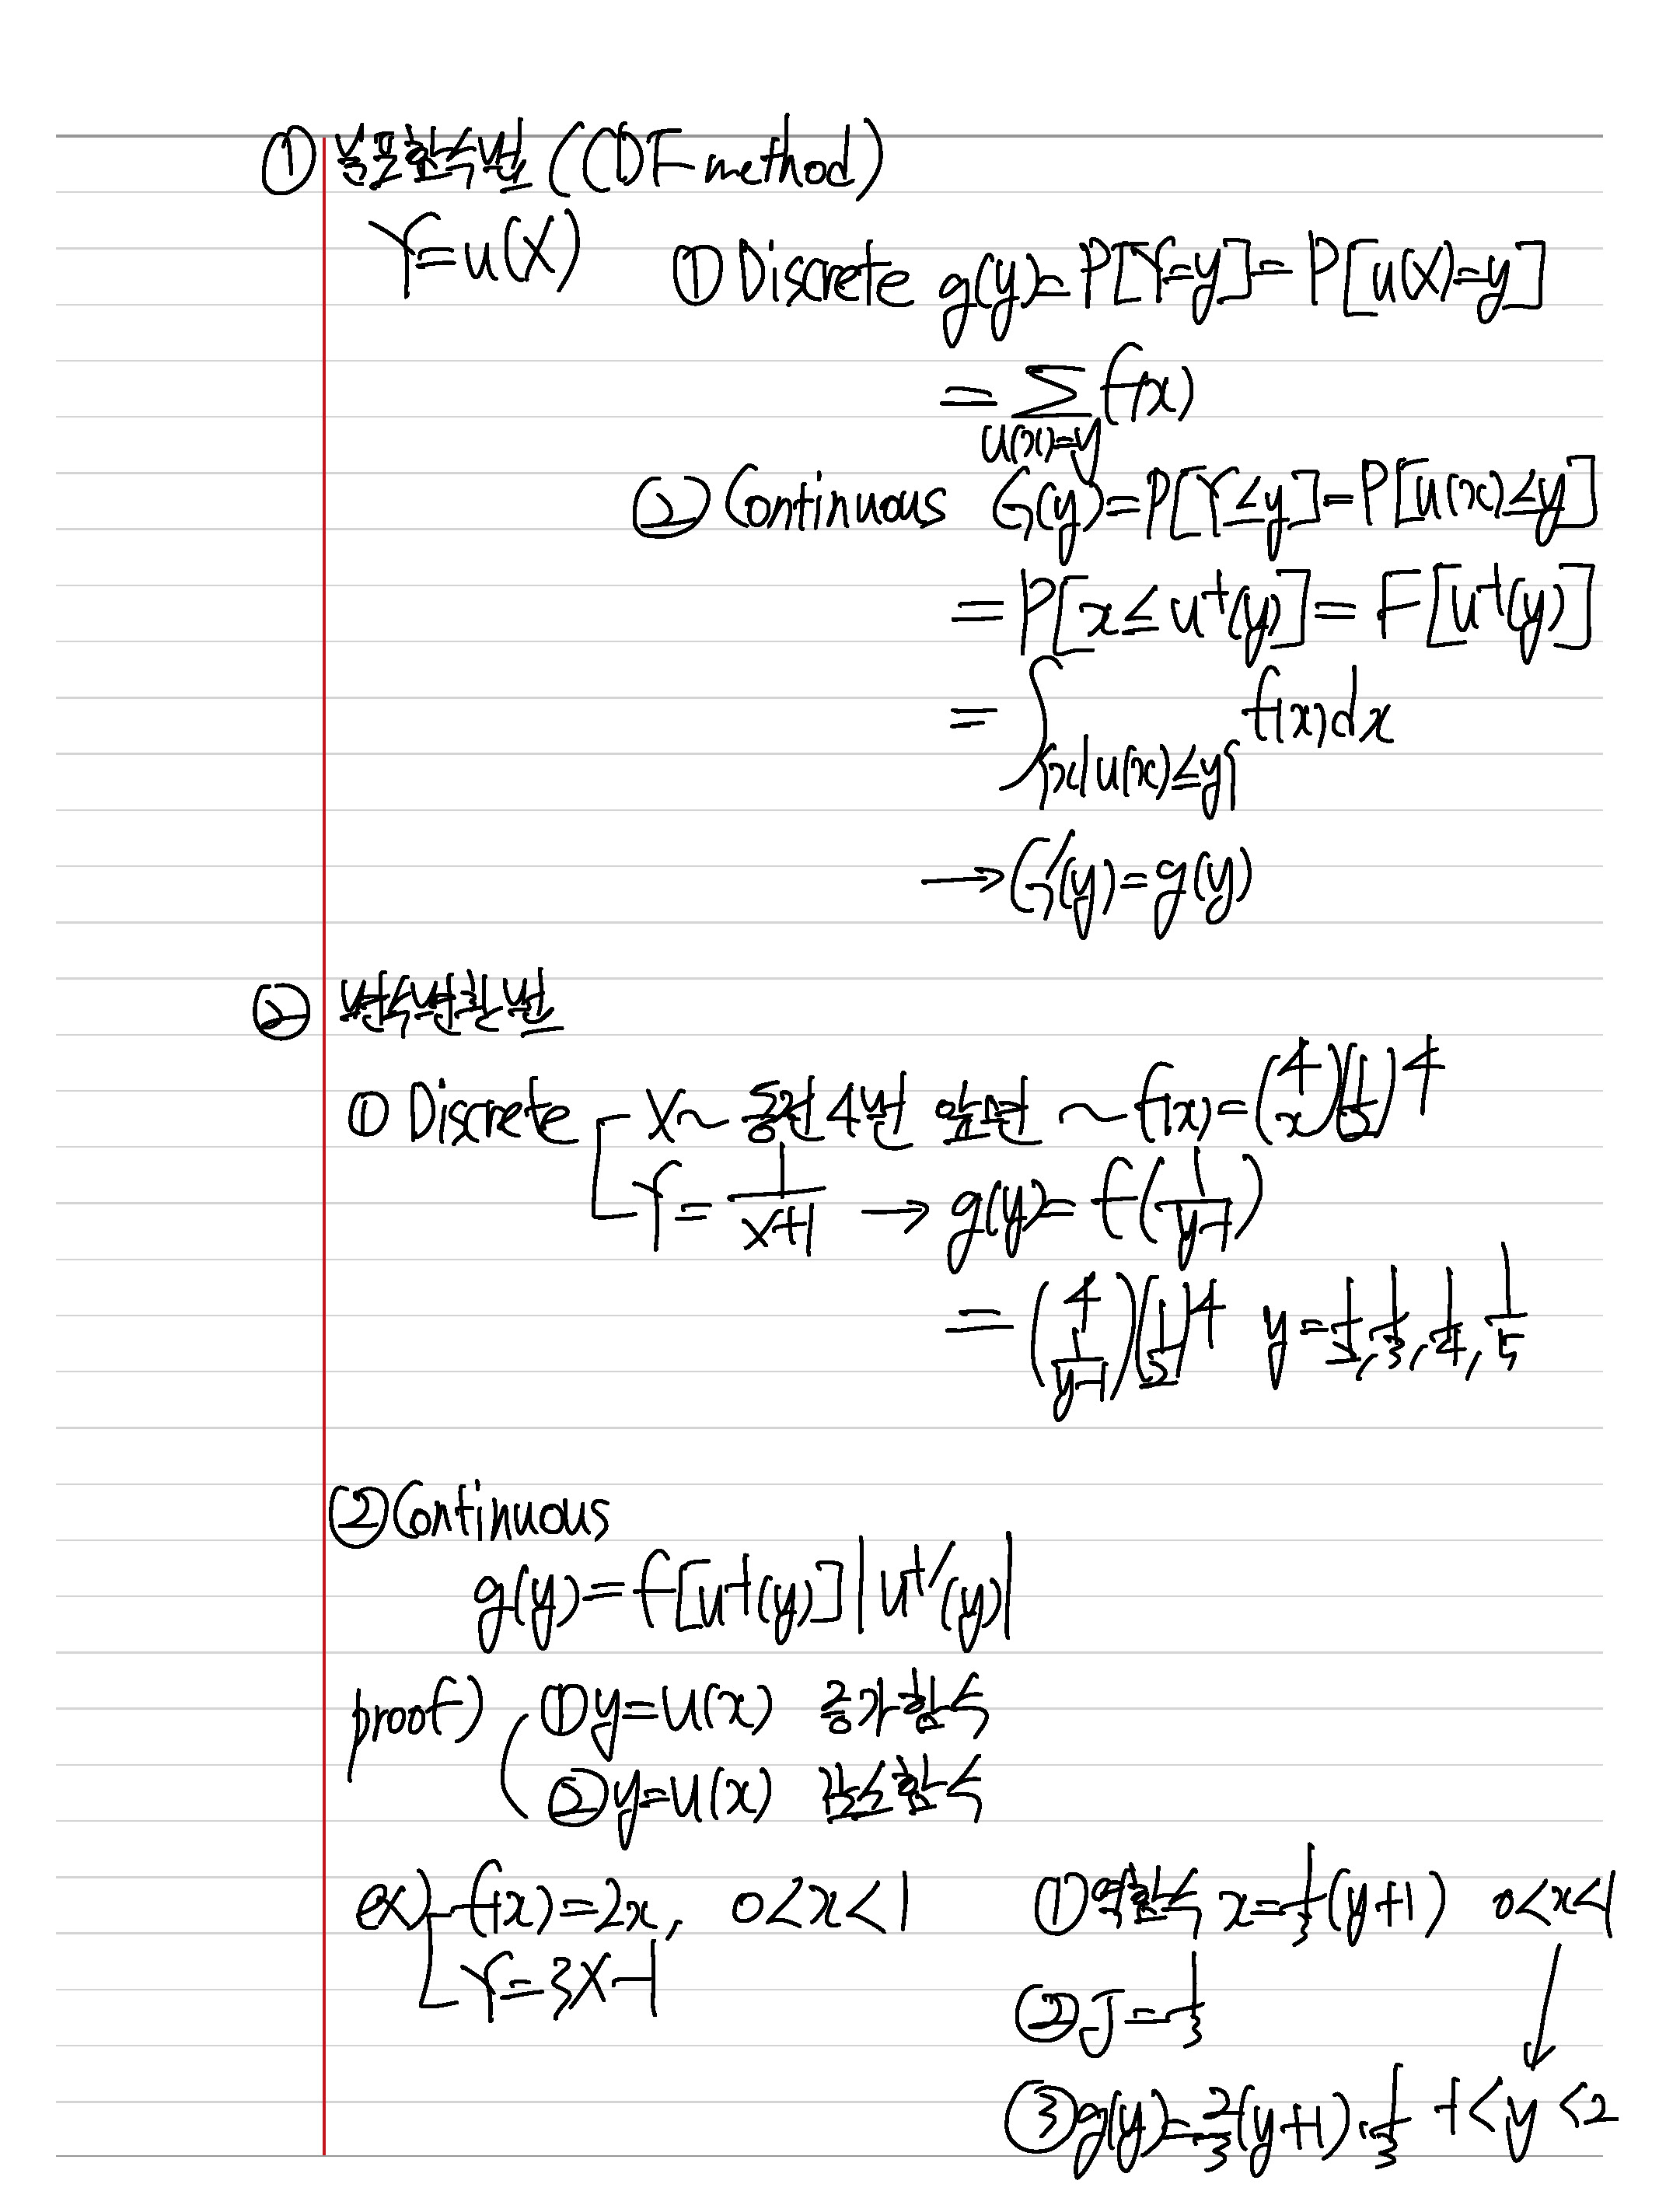 ① 분포함수법 (CDF method)
Y=u(X) ① Discrete g(y)=P[Y=y]=P[u(X)=y]
=∑_{u(x)=y} f(x)
② Continuous G(y)=P[Y≤y]=P[u(x)≤y]
=P[x≤u⁻¹(y)]=F[u⁻¹(y)]
=∫_{{x|u(x)≤y}} f(x)dx
→G'(y)=g(y)
② 변수변환법
① Discrete X~ 동전 4번 앞면 ~ f(x)=(4 x)(1/2)^4
Y=1/(x+1) → g(y)=f(1/(y-1))
=(4 1/(y-1))(1/2)^4 y=1/2, 1/3, 1/4, 1/5
② Continuous
g(y)=f[u⁻¹(y)]|u⁻¹'(y)|
proof) ① y=u(x) 증가함수
② y=u(x) 감소함수
ex) f(x)=2x, 0<x<1 ① 역함수 x=1/3(y+1) 0<x<1
Y=3X-1 ② J=1/3
③ g(y)=2/3(y+1)·1/3 -1<y<2